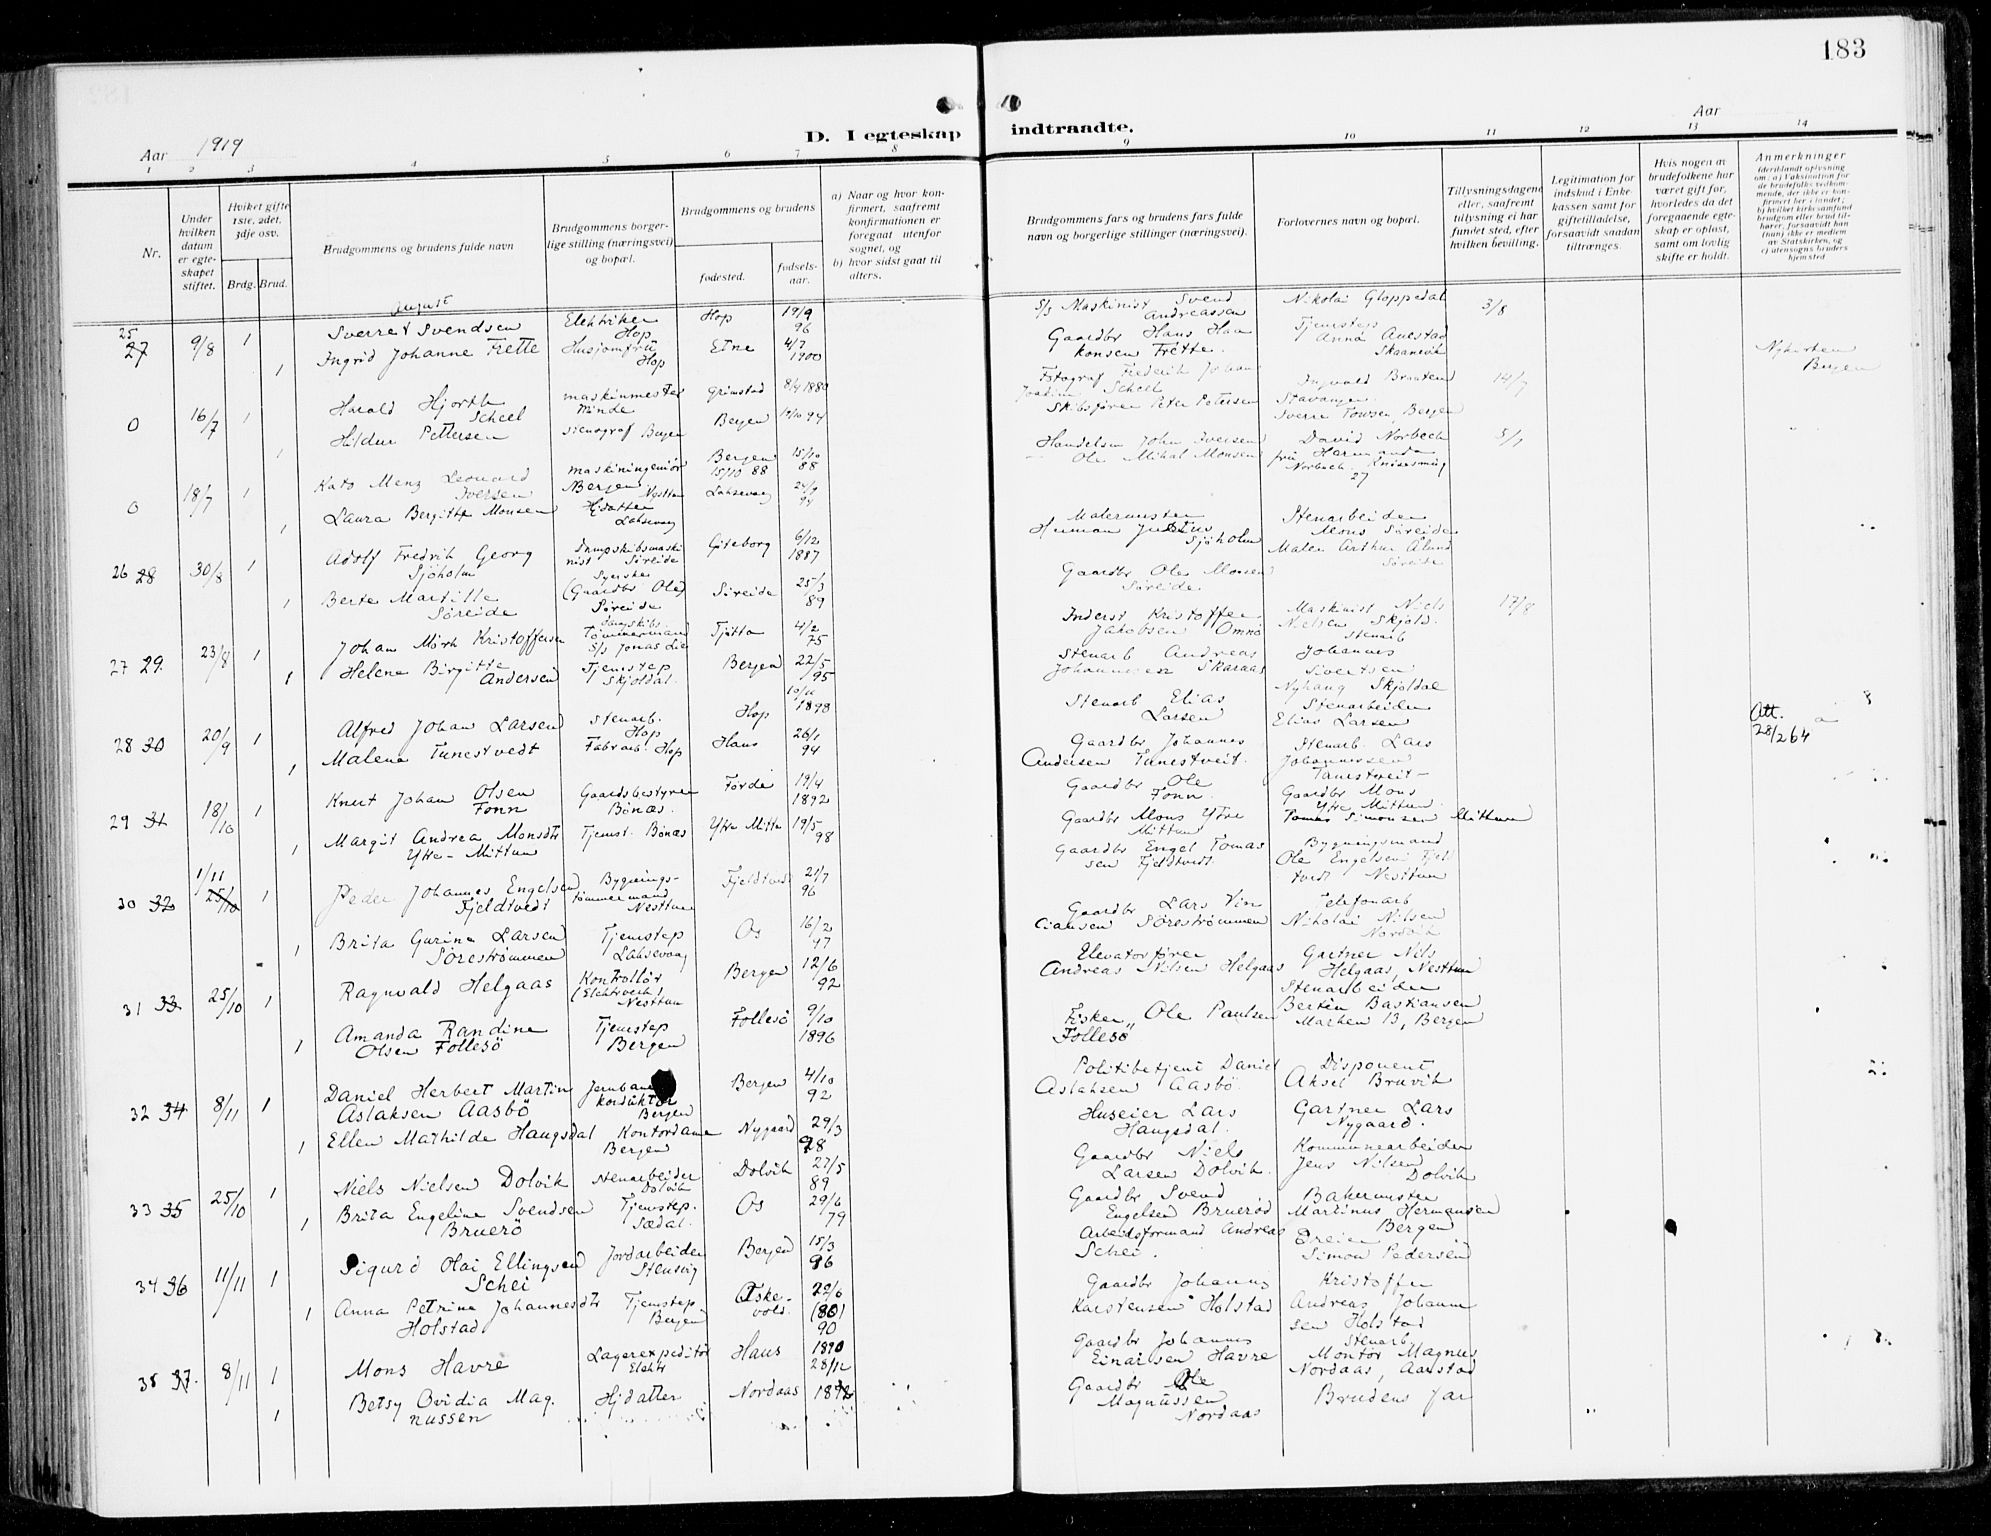 183
D. I egteskap indtraadte.
Aar 1919
Aar
1 2 3 4 5 6 7 8 9 10 11 12 13 14
Nr.
Under hvilken datum er egteskapet stiftet.
Hviket gifte 1ste, 2det, 3dje osv.
Brdg. Brud.
Brudgommens og brudens fulde navn
Brudgommens borgerlige stilling (næringsvei) og bopæl.
Brudgommens og brudens
fødested.
fødselsaar.
a) Naar og hvor konfirmert, saafremt konfirmationen er foregaat utenfor sognet, og
b) hvor sidst gaat til alters.
Brudgommens fars og brudens fars fulde navn og borgerlige stillinger (næringsvei).
Forlovernes navn og bopæl.
Tillysningsdagene eller, saafremt tillysning ei har fundet sted, efter hvilken bevilling.
Legitimation for indskud i Enkekassen samt for giftetilladelse, forsaavidt saadan tiltrænges.
Hvis nogen av brudefolkene har været gift før, hvorledes da det foregaaende egteskap er opløst, samt om lovlig skifte er holdt.
Anmerkninger
25 27 9/8 1 Sverre August Svendsen Elektriker Hop Hop 19/9 96 S/s Maskinist Svend Andreassen Nikolai Gloppedal 3/8
1 Ingrid Johanne Frette Husjomfru Hop Etne 4/7 1900 Gaardbr Hans Haakonsen Frette. Tjenestep Anna Auestad Skaanevik
0 16/7 1 Harald Hjorth Scheel maskinmester Minde Grimstad 8/4 1880 Fotograf Frederik Johan Joachim Scheel Ingvald Braaten Stavanger 14/7 Nykirken Bergen
1 Hildur Pettersen Bergen Bergen 19/10 94 Skibsfører Peter Petersen Sverre Bergen
0 18/7 1 Kato Menz Leonard Iversen maskiningeniør Bergen Nesttun Bergen 15/10 88 15/10 88 John Iversen David Norbech 5/7
1 Laura Bergitte Monsen Hjdatter Laksevaag Laksevaag 24/9 94 Ole Mikal Monsen fru Hermanda Norbech 27
26 28 30/8 1 Adolf Fredrik Georg Sjöholm Dampskibsmaskinist Søreide Göteborg 6/12 1887 Malermester Herman Julius Sjöholm Stenarbeider Mons Søreide
1 Berte Martille Søreide Syerske (Gaardbr Ole) Søreide Søreide 25/3 89 Gaardbr Ole Monsen Søreide. Maler Arthur Søreide
27 29 23/8 1 Johan Mörk Kristoffersen Dampskibs. Tømmermand S/s Jonas Lie Tjötta 4/2 75 Inderst Kristoffer Jakobsen Omnö Maskinist Niels Nielsen Skjold. 17/8
1 Helene Birgitte Andersen Tjenestep Skjoldal. Bergen 22/5 95 Stenarb Andreas Johannesen Skaraas Stenarb Johannes Sivertsen Skjoldal
28 30 20/9 1 Alfred Johan Larsen Stenarb. Hop Hop 10/11 1898 Stenarb Elias Larsen Stenarbeider Elias Larsen Att. 28/2 64
1 Malena Tunestvedt Fabrarb. Hop Haus 26/1 94 Gaardbr Johannes Andersen Tunestveit. Stenarb. Lars Johannessen Tunestveit
29 31 18/10 1 Knut Johan Olsen Fonn Gaardsbestyrer Bønæs. Førde 19/4 1892 Gaardbr Ole Fonn. Gaardbr Mons Ytre Mittun.
1 Margit Andrea Monsdtr Ytre-Mittun Tjenst. Bønæs Ytre Mittun 19/5 98 Gaardbr Mons Ytre Mittun Tomas Simonsen Mittun
30 32 1/11 25/10 1 Peder Johannes Engelsen Fjeldtvedt Bygningstømmermand Nesttun Fjeldtvedt 21/7 96 Gaardbr Engel Tomassen Fjeldtvedt Bygningsmand Ole Engelsen Fjeldtvedt Nesttun
1 Brita Gurine Larsen Sørestrømmen Tjenestep Laksevaag Os 16/2 97 Gaardbr Lars Vinciansen Sørestrømmen Telefonarb Nikolai Nilsen Nordvik
31 33 25/10 1 Ragnvald Helgaas Kontrollør (Elektverk) Nesttun Bergen 12/6 92 Elevatorfører Andreas Nilsen Helgaas Gartner Nils Helgaas, Nesttun
1 Amanda Randine Olsen Follesö Tjenestep Bergen Follesö 9/10 1896 Fisker Ole Paulsen Follesö Stenarbeider Bertin Bastiansen Marken 13, Bergen
32 34 8/11 1 Daniel Herbert Martin Aslaksen Aasbö Jernbane konduktør Bergen Bergen 4/10 92 Politibetjent Daniel Aslaksen Aasbö. Disponent Aksel Bruvik
1 Ellen Mathilde Haugsdal Kontordame Bergen Nygaard 29/3 98 Huseier Lars Haugsdal. Gartner Lars Nygaard.
33 35 25/10 1 Niels Nielsen Dolvik Stenarbeider Dolvik Dolvik 27/5 89 Gaardbr Niels Larsen Dolvik. Kommunearbeider Jens Nilsen Dolvik
1 Brita Engeline Svendsen Bruerö Tjenestep. Sædal. Os 29/6 79 Gaardbr Svend Engelsen Bruerød Bakermester Martinus Hermansen Bergen
34 36 11/11 1 Sigurd Olai Ellingsen Schei Jordarbeider Stensvig Bergen 15/3 86 Arbeidsformand Andreas Schei. Dreier Simon Pedersen
1 Anna Petrina Johannesdtr Holstad Tjenestep Bergen Askevold. 22/6 (80) 90 Gaardbr Johannes Karstensen Holstad Kristoffer Andreas Johannsen Holstad Stenarb
35 37. 8/11 1 Mons Havre Lagerexpeditør Elektr Haus 1890 28/12 Gaardbr Johannes Einarsen Havre Montør Magnus Nordaas, Aarstad
1 Betsy Ovidia Magnussen Hjdatter Nordaas 1892 Gaardbr Ole Magnussen Nordaas Brudens far